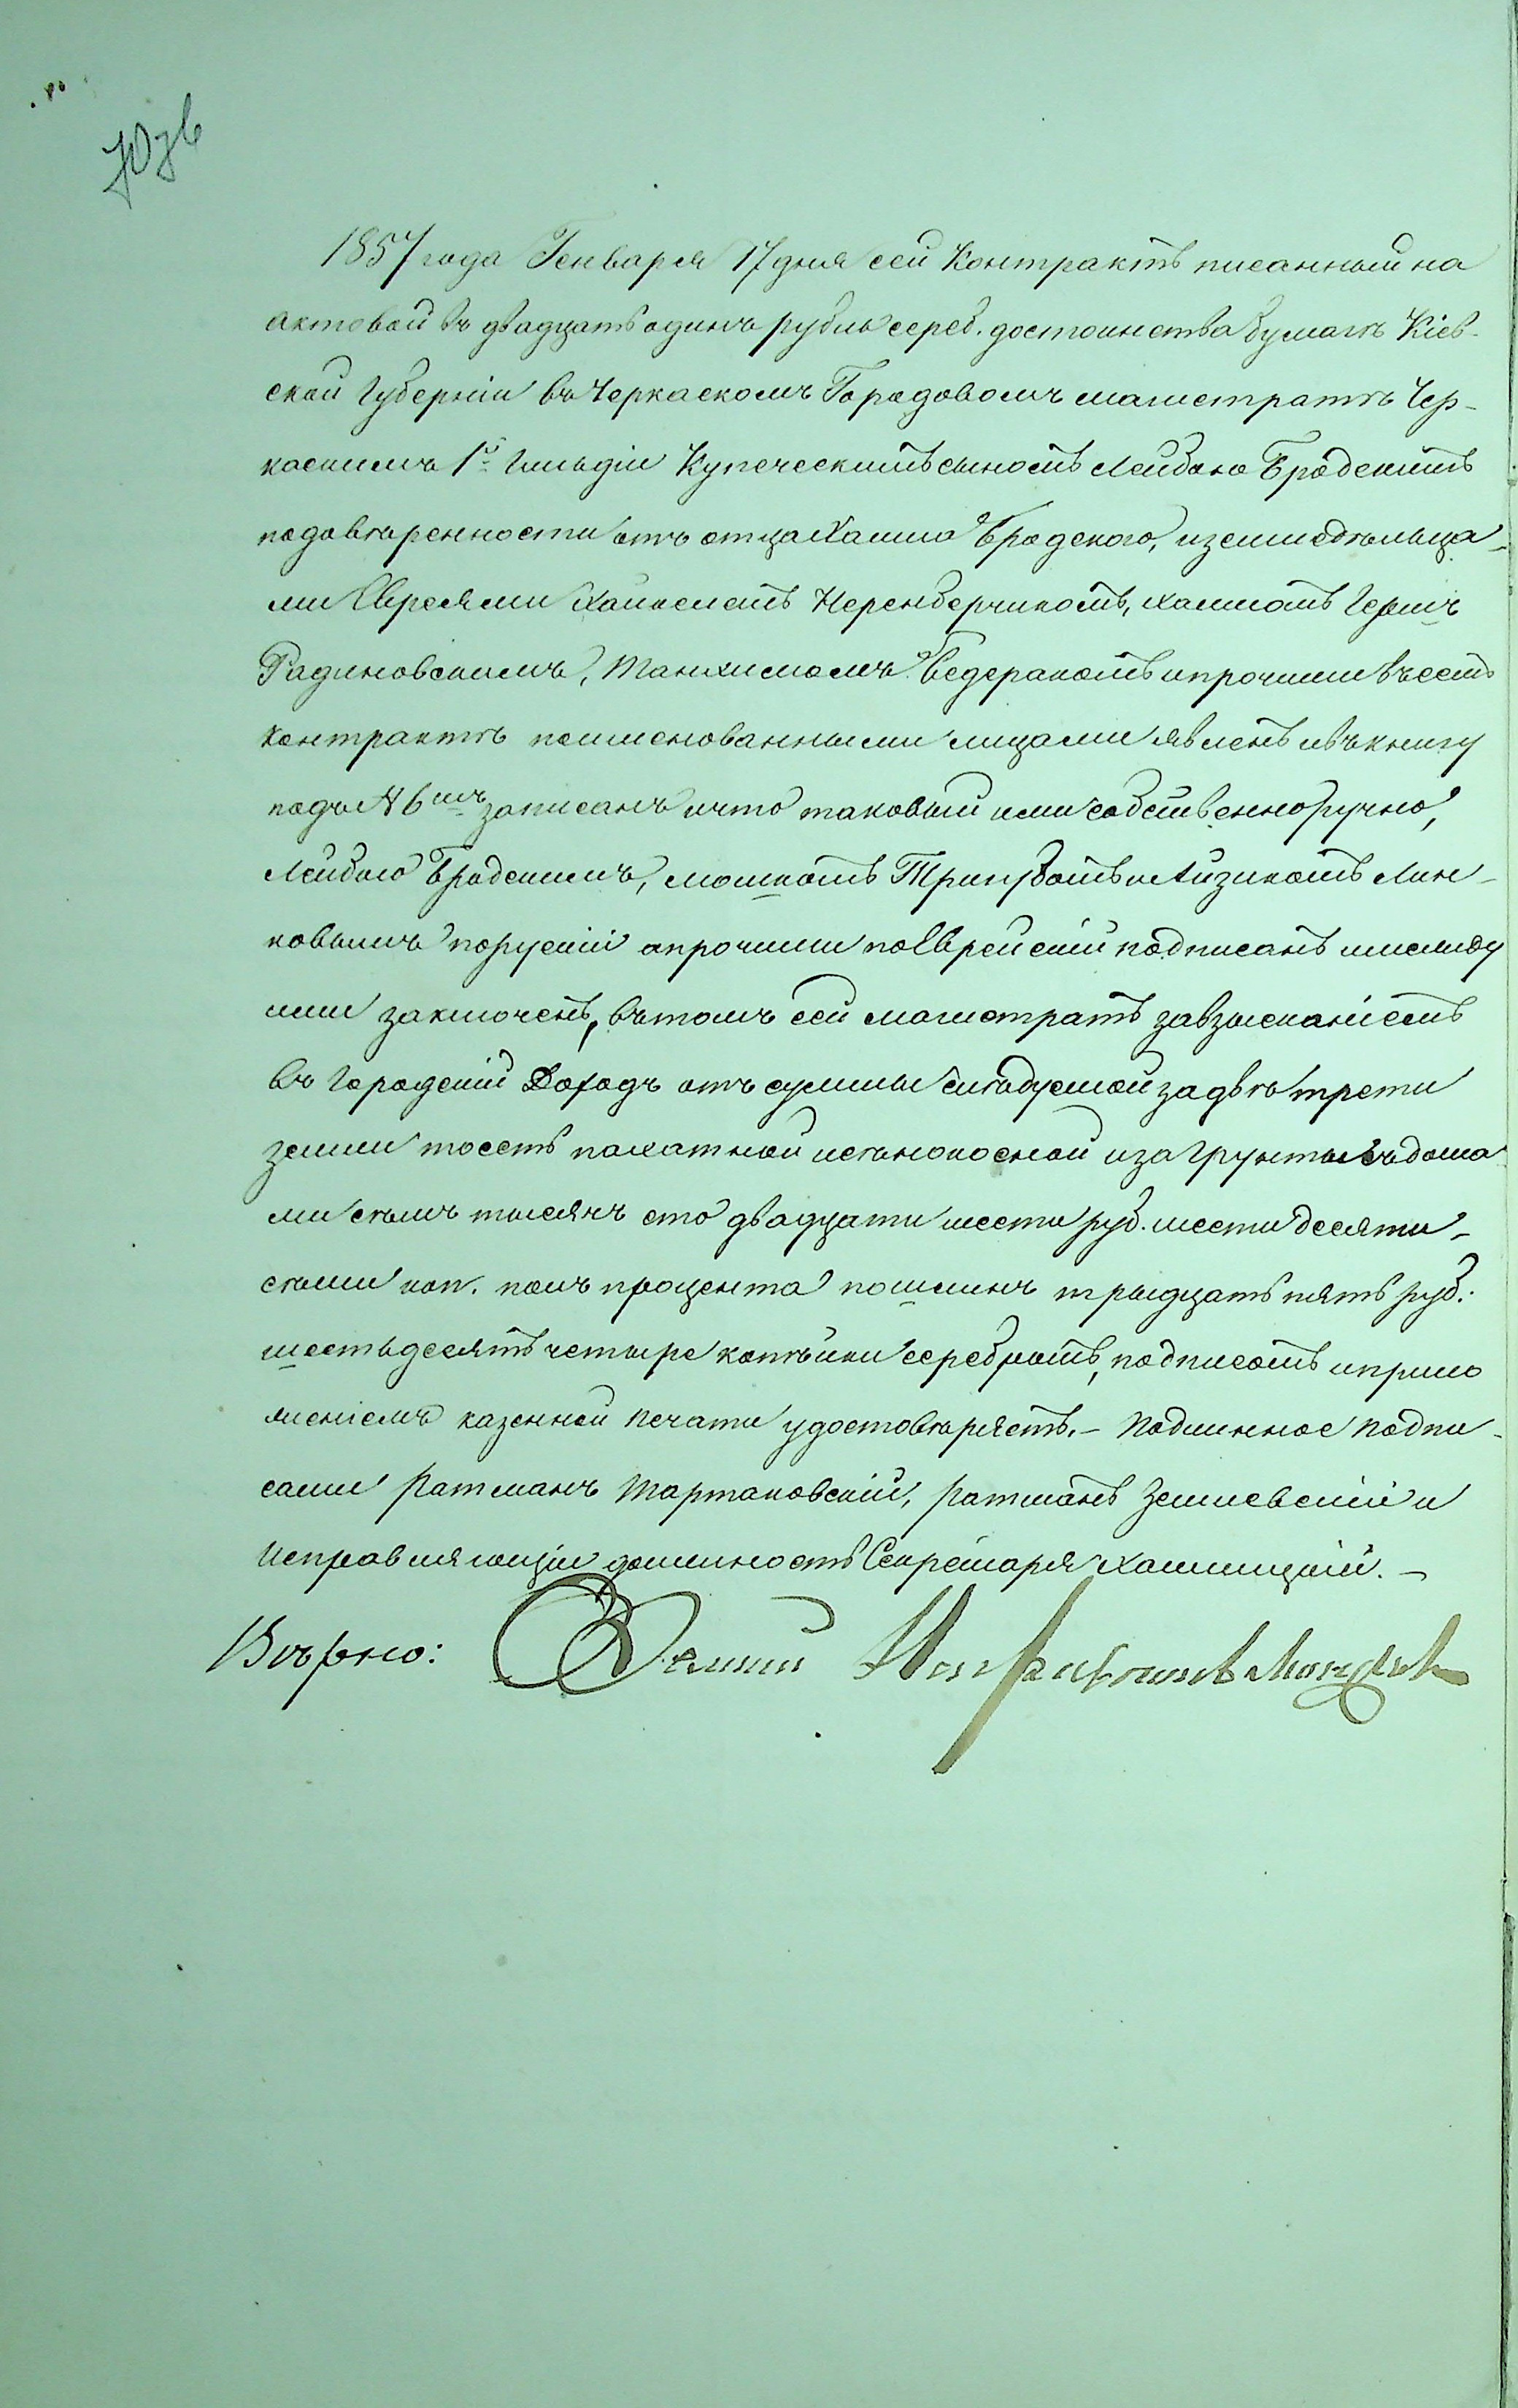 1857 года Генваря 17 дня сей Контрактъ писанный на
актовой въ двадцать одинъ рубль сереб. достоинства бумагѣ Кіев-
ской Губерніи въ Черкаскомъ Городовомъ магистратѣ Чер-
каскимъ 1й Гильдіи Купеческимъ сыномъ Лейбою Бродскимъ
подовѣренности отъ отца Хаима Бродского, и земледѣльца-
ми Евреями Хаикелемъ Неренберчикомъ, Хаимомъ Герш
Радиновскимъ, Танхимомъ Бедеракомъ и прочими въ семъ
контрактѣ поименованными лицами явленъ и въ книгу
подъ № 6мъ записанъ и что таковый ими собственноручно,
Лейбою Бродскимъ, Мошкомъ Тригубомъ и Айзикомъ Лин-
ковымъ порускій а прочими поеврейскій подписанъ и между
ими заключенъ, въ томъ сей магистратъ завзысканіемъ
въ городскій Доходъ отъ суммы слѣдуемой за двѣ трети
земли тоесть пахатной и сѣнокосной и за грунты съ дома
ми семъ тысячъ сто двадцати шести руб. шестидесяти-
семи коп. полъ процента пошлинъ тридцать пять руб.
шестьдесятъ четыре копѣйки серебромъ, подписомъ и прило
женіемъ казенной печати удостовѣряетъ. – Подлинное подпи-
сали Ратманъ Тартаковскій, ратманъ Зелиевскій и
Исправляющій должность Секретаря Халицкій. –
Вѣрно: